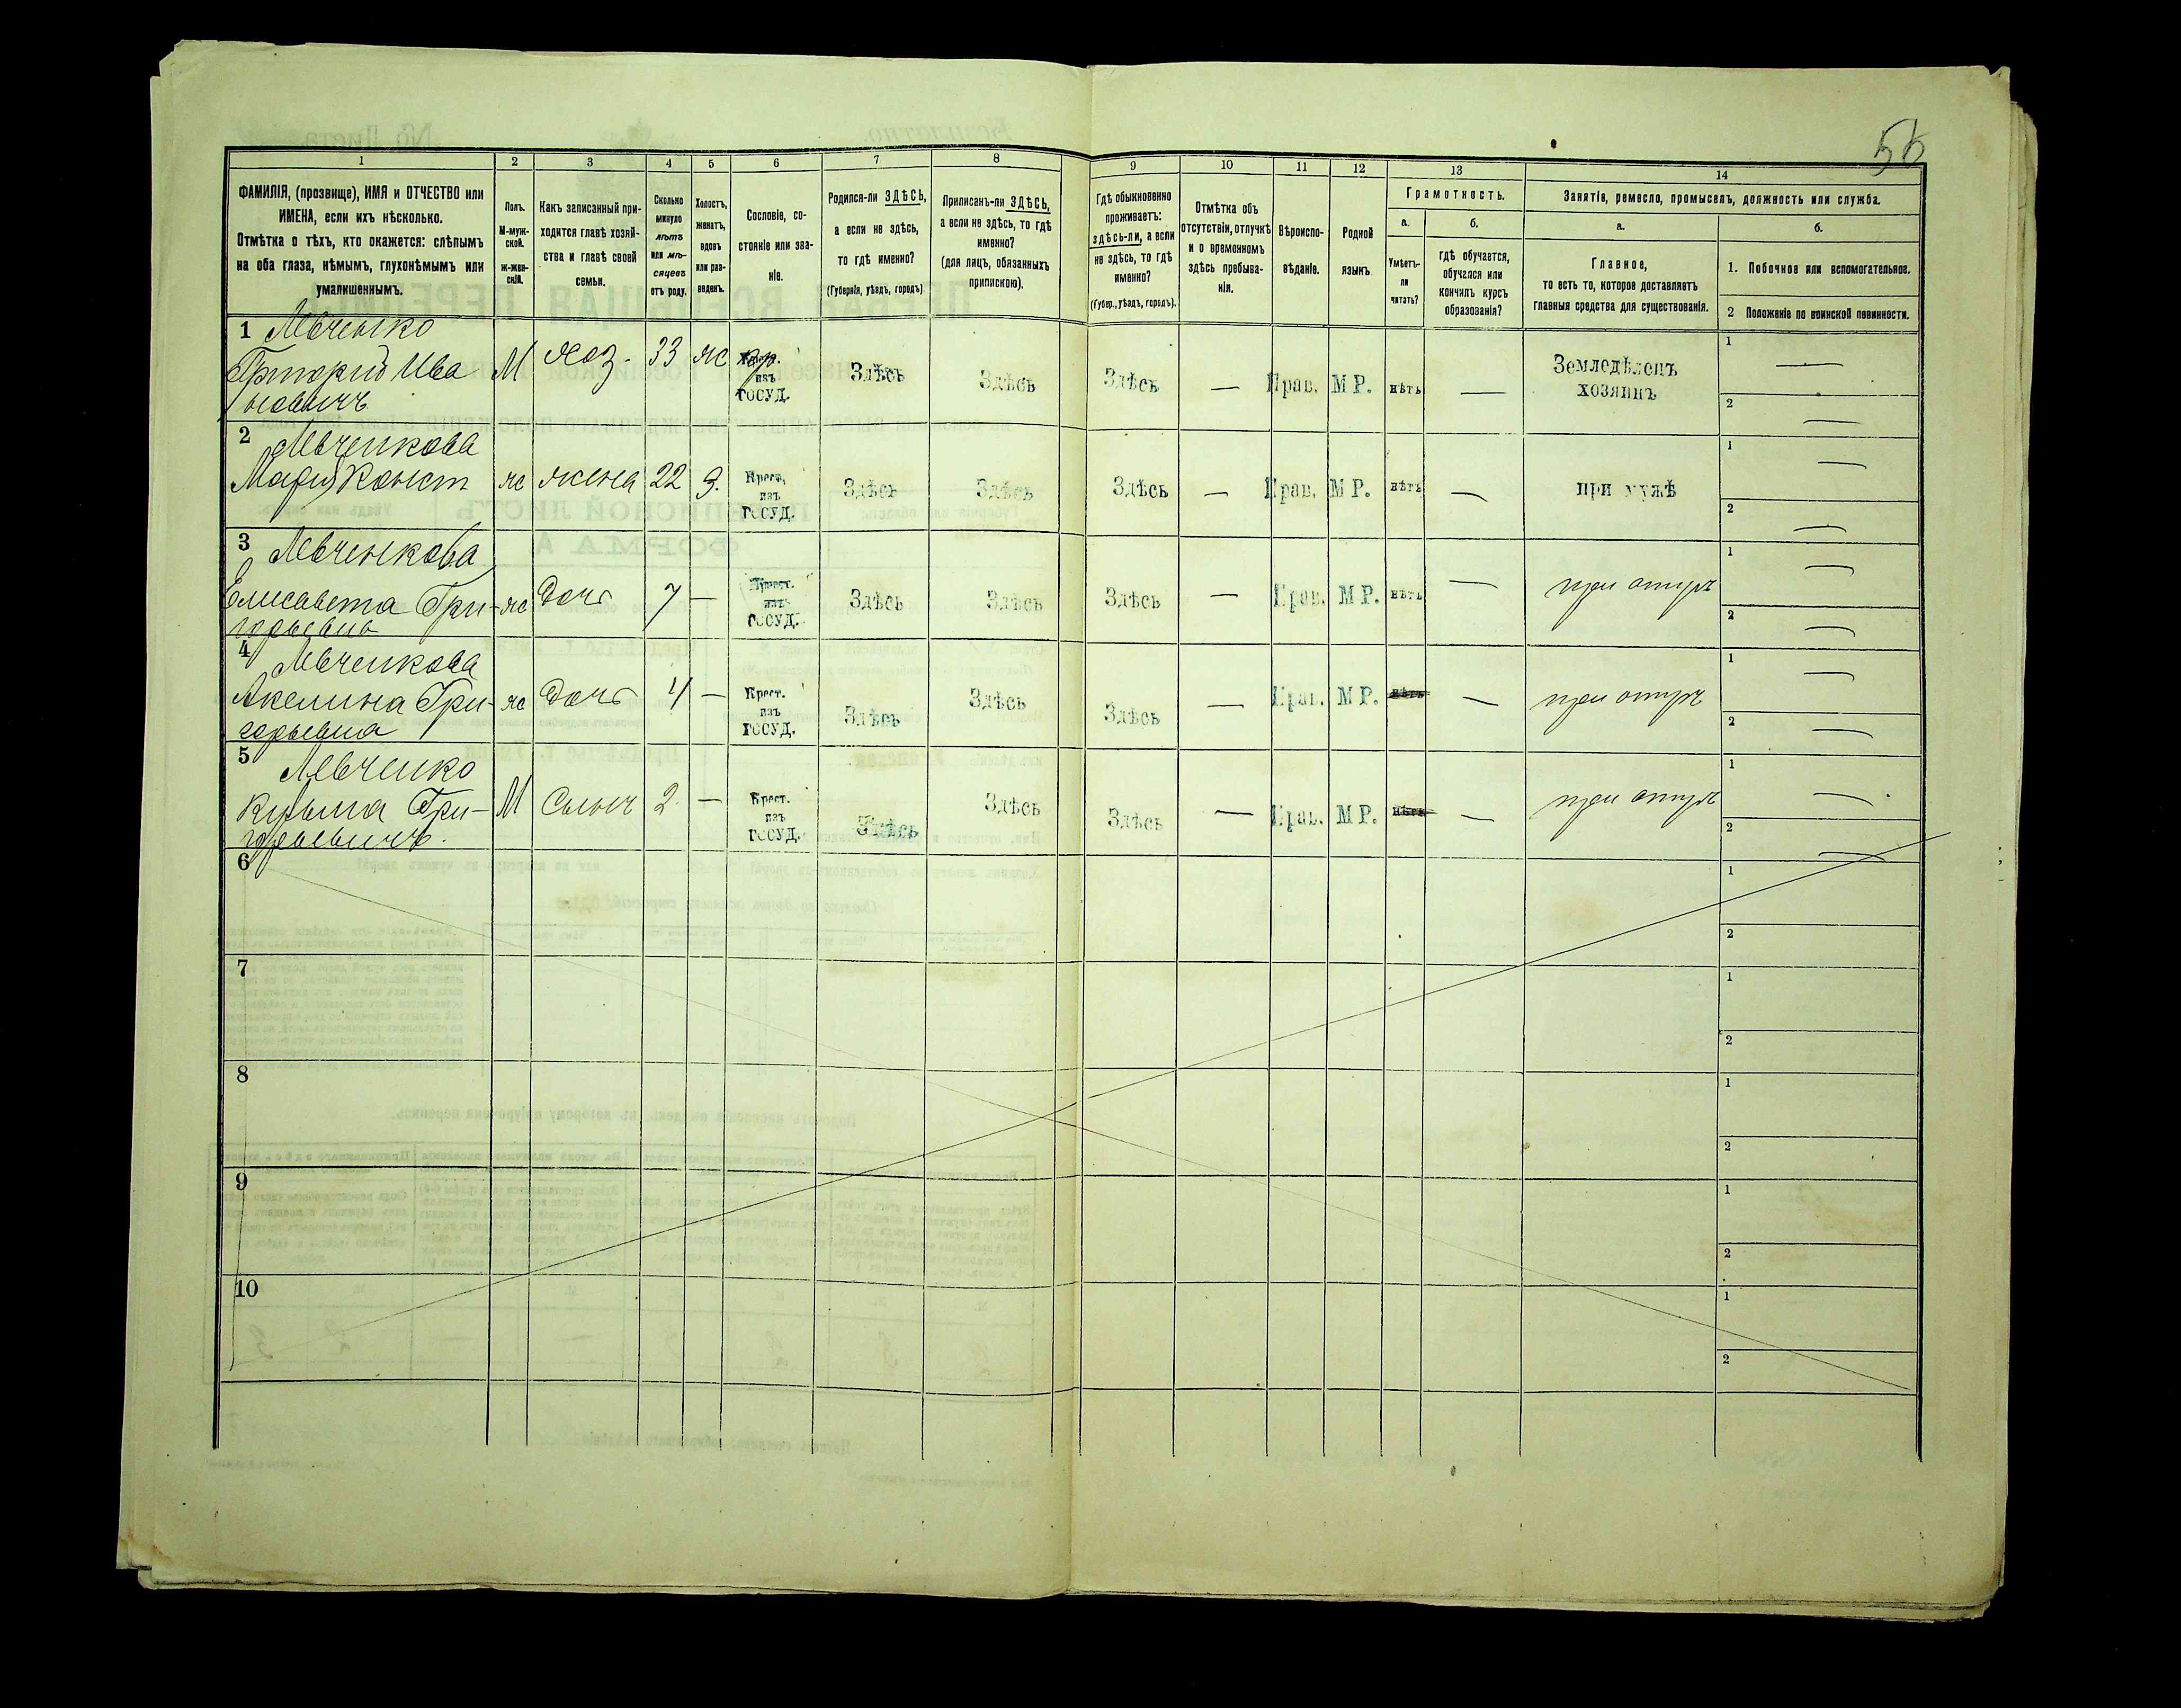 55
1 2 3 4 5 6 7 8 9 10 11 12 13 14
ФАМИЛІЯ, (прозвище), ИМЯ и ОТЧЕСТВО или
ИМЕНА, если ихъ нѣсколько.
Отмѣтка о тѣхъ, кто окажется: слѣпымъ
на оба глаза, нѣмымъ, глухонѣмымъ или
умалишеннымъ.
Полъ.
М-муж-
ской.
ж-жен-
скій.
Какъ записанный при-
ходится главѣ хозяй-
ства и главѣ своей
семьи.
Сколько
минуло
лѣтъ
или мѣ-
сяцевъ
отъ роду.
Холостъ,
женатъ,
вдовъ
или раз-
веденъ.
Сословіе, со-
стояніе или зва-
ніе.
Родился-ли ЗДѢСЬ,
а если не здѣсь,
то гдѣ именно?
(Губернія, уѣздъ, городъ).
Приписанъ-ли ЗДѢСЬ,
а если не здѣсь, то гдѣ
именно?
(для лицъ, обязанныхъ
припискою).
Гдѣ обыкновенно
проживаетъ:
здѣсь-ли, а если
не здѣсь, то гдѣ
именно?
(Губер., уѣздъ, городъ).
Отмѣтка объ
отсутствіи, отлучкѣ
и о временномъ
здѣсь пребыва-
ніи.
Вѣроиспо-
вѣданіе.
Родной
языкъ.
Грамотность.
а.
Умѣетъ-
ли
читать?
б.
гдѣ обучается,
обучался или
кончилъ курсъ
образованія?
Занятіе, ремесло, промыселъ, должность или служба.
а.
Главное,
то есть то, которое доставляетъ
главныя средства для существованія.
б.
1. Побочное или вспомогательное.
2 Положеніе по воинской повинности.
1 Левченко
Григорій Ива
новичъ
М хоз. 33 ж Кр.
изъ
ГОСУД.
Здѣсь Здѣсь Здѣсь — Прав. М Р. нѣтъ —
Земледѣлецъ
хозяинъ
1 —
2 —
2 Левченкова
Марія Конст
ж жена 22 з. Крест.
изъ
ГОСУД.
Здѣсь Здѣсь Здѣсь — Прав. М Р. нѣтъ — при мужѣ
1 —
2 —
3 Левченкова
Елисавета Гри-
горьевна
ж дочь 7 — Крест.
изъ
ГОСУД.
Здѣсь Здѣсь Здѣсь — Прав. М Р. нѣтъ — при отцѣ
1 —
2 —
4 Левченкова
Акелина Гри-
горьевна
ж дочь 4 — Крест.
изъ
ГОСУД.
Здѣсь Здѣсь Здѣсь — Прав. М Р. нѣтъ — при отцѣ
1 —
2 —
5 Левченко
Кузьма Гри-
горьевичъ.
М Сынъ 2 — Крест.
изъ
ГОСУД.
Здѣсь Здѣсь Здѣсь — Прав. М Р. нѣтъ — при отцѣ
1 —
2 —
6
1
2
7
1
2
8
1
2
9
1
2
10
1
2